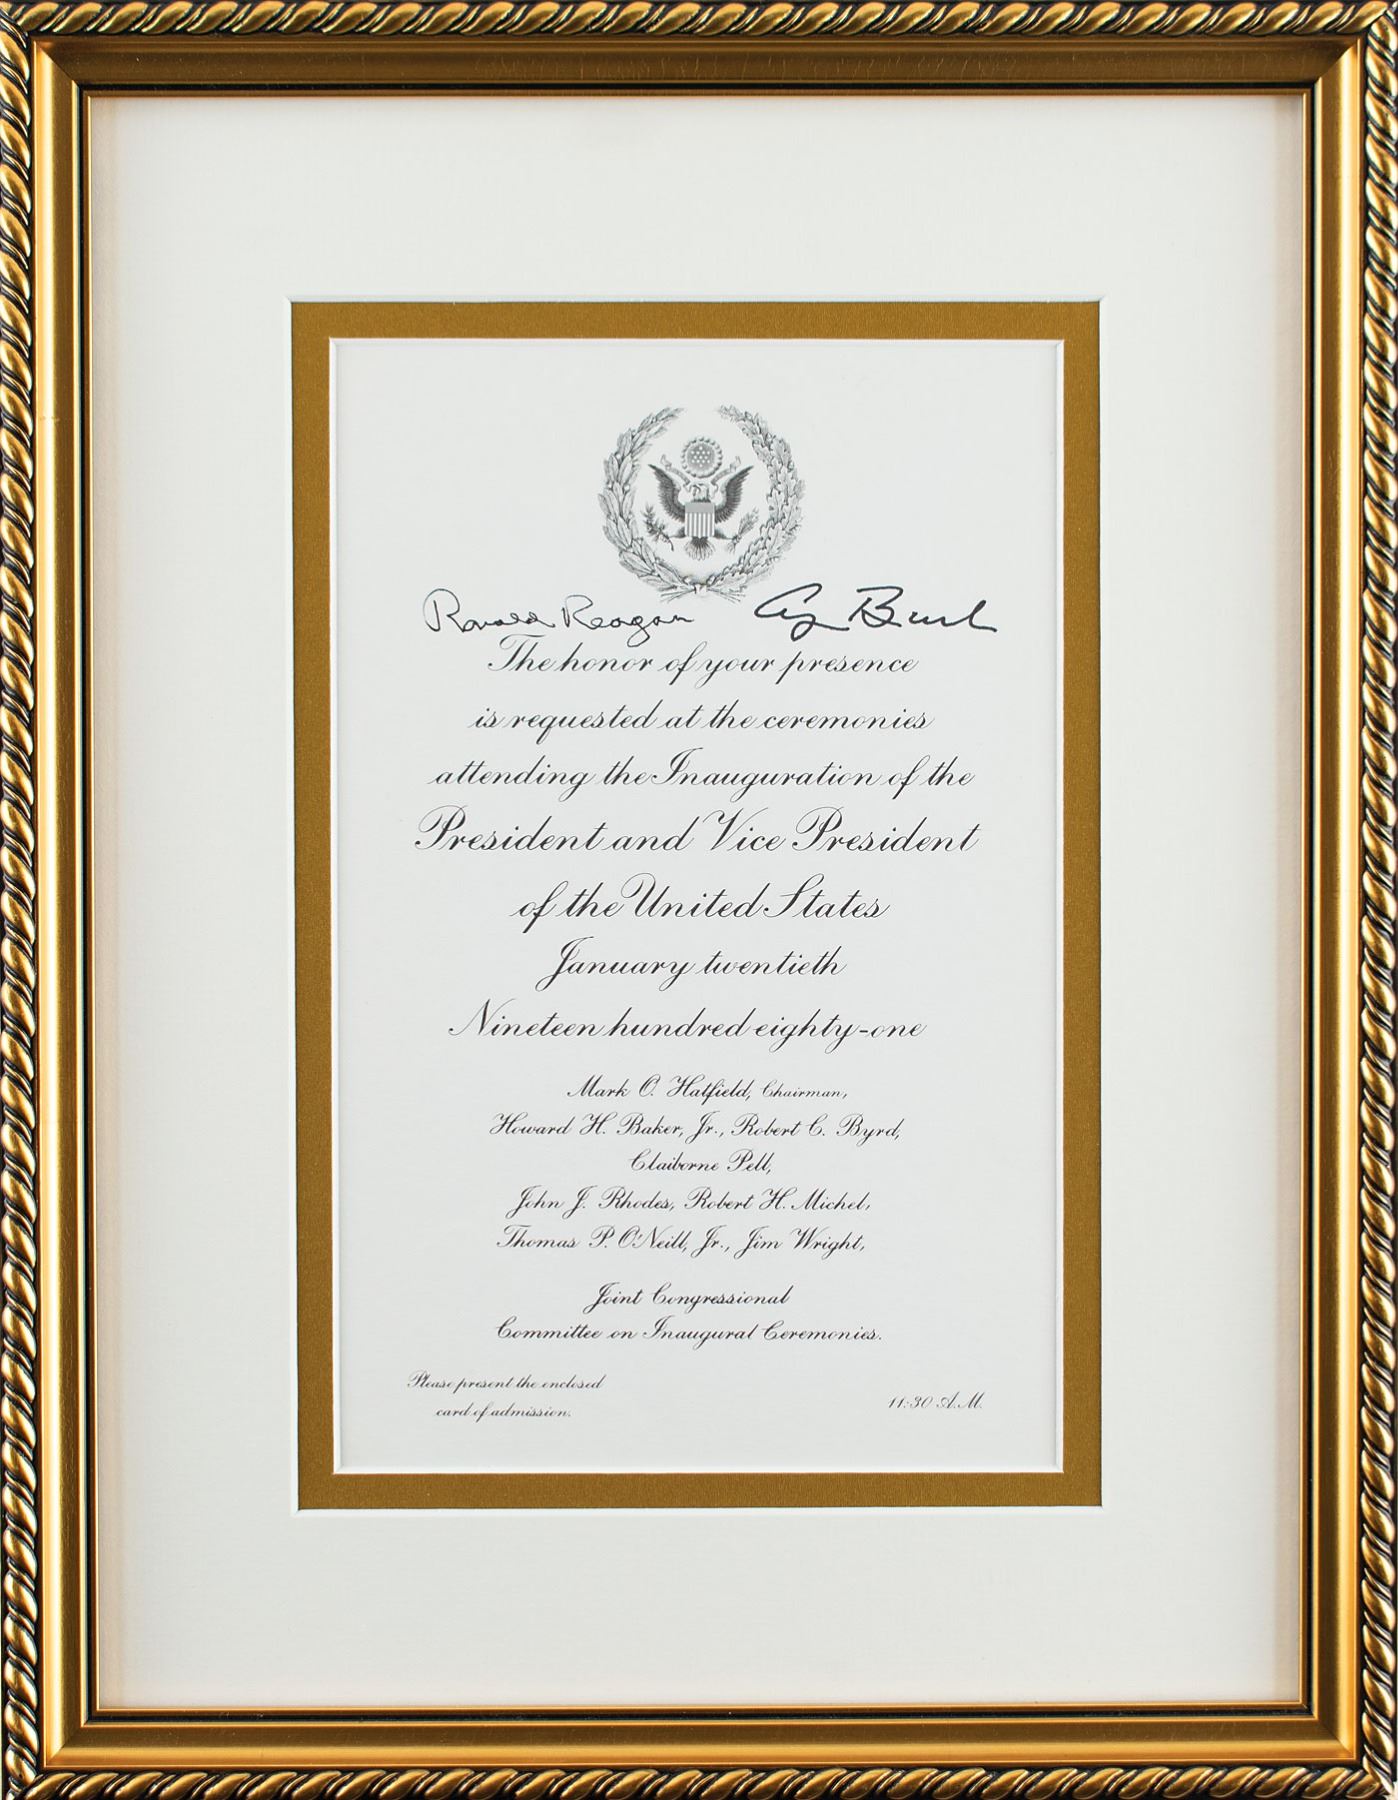 Ronald Reagan George Bush
The honor of your presence
is requested at the ceremonies
attending the Inauguration of the
President and Vice President
of the United States
January twentieth
Nineteen hundred eighty-one
Mark O. Hatfield, Chairman,
Howard H. Baker, Jr., Robert C. Byrd,
Claiborne Pell,
John J. Rhodes, Robert H. Michel,
Thomas P. O'Neill, Jr., Jim Wright,
Joint Congressional
Committee on Inaugural Ceremonies.
Please present the enclosed
card of admission.
11:30 A.M.